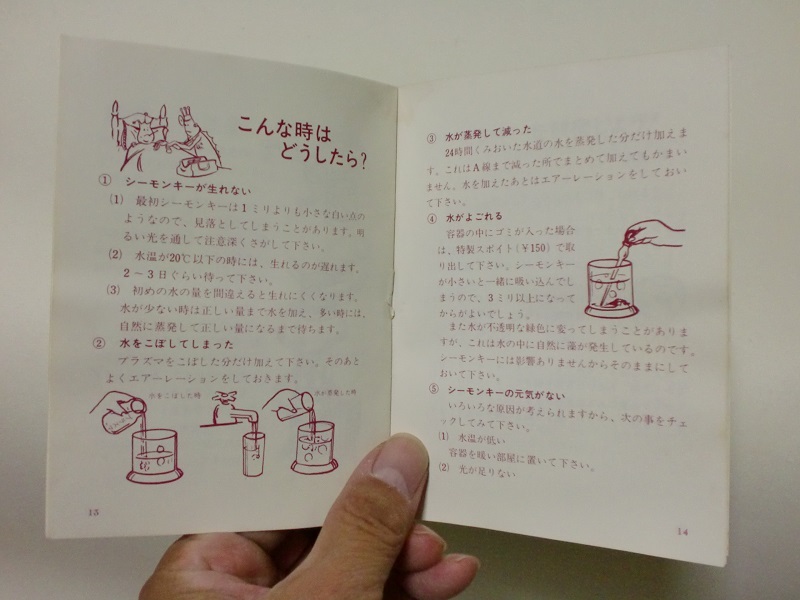 こんな時は
どうしたら?
① シーモンキーが生れない
(1) 最初シーモンキーは1ミリよりも小さな白い点の
ようなので、見落としてしまうことがあります。明
るい光を通して注意深くさがして下さい。
(2) 水温が20℃以下の時には、生れるのが遅れます。
2～3日ぐらい待って下さい。
(3) 初めの水の量を間違えると生れにくくなります。
水が少ない時は正しい量まで水を加え、多い時には、
自然に蒸発して正しい量になるまで待ちます。
② 水をこぼしてしまった
プラズマをこぼした分だけ加えて下さい。そのあと
よくエアーレーションをしておきます。
水をこぼした時
水が蒸発した時
15
③ 水が蒸発して減った
24時間くみおいた水道の水を蒸発した分だけ加えま
す。これはA線まで減った所でまとめて加えてもかまい
ません。水を加えたあとはエアーレーションをしておい
て下さい。
④ 水がよごれる
容器の中にゴミが入った場合
は、特製スポイト(¥150)で取
り出して下さい。シーモンキー
が小さいと一緒に吸い込んでし
まうので、3ミリ以上になって
からがよいでしょう。
また水が不透明な緑色に変ってしまうことがありま
すが、これは水の中に自然に藻が発生しているのです。
シーモンキーには影響ありませんからそのままにして
おいて下さい。
⑤ シーモンキーの元気がない
いろいろな原因が考えられますから、次の事をチェ
ックしてみて下さい。
(1) 水温が低い
容器を暖い部屋に置いて下さい。
(2) 光が足りない
14